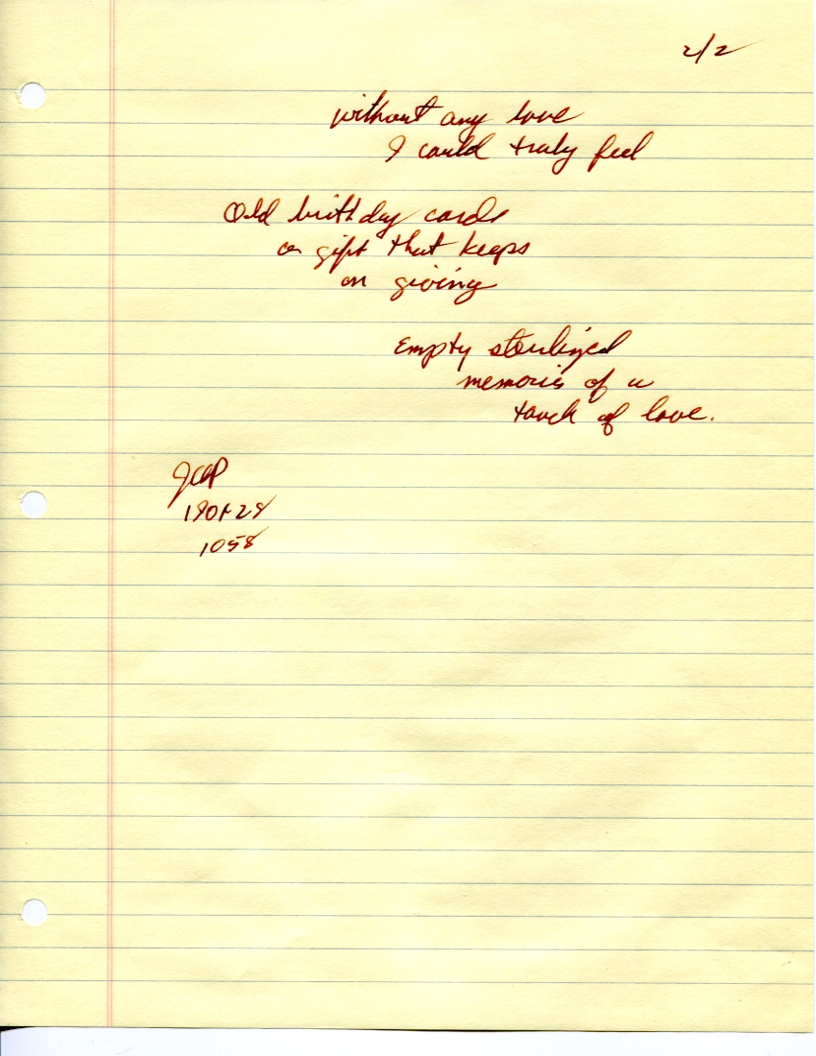 2/2
without any love
I could truly feel
Old birthday cards
a gift that keeps
on giving
Empty sterilized
memories of a
touch of love.
1058